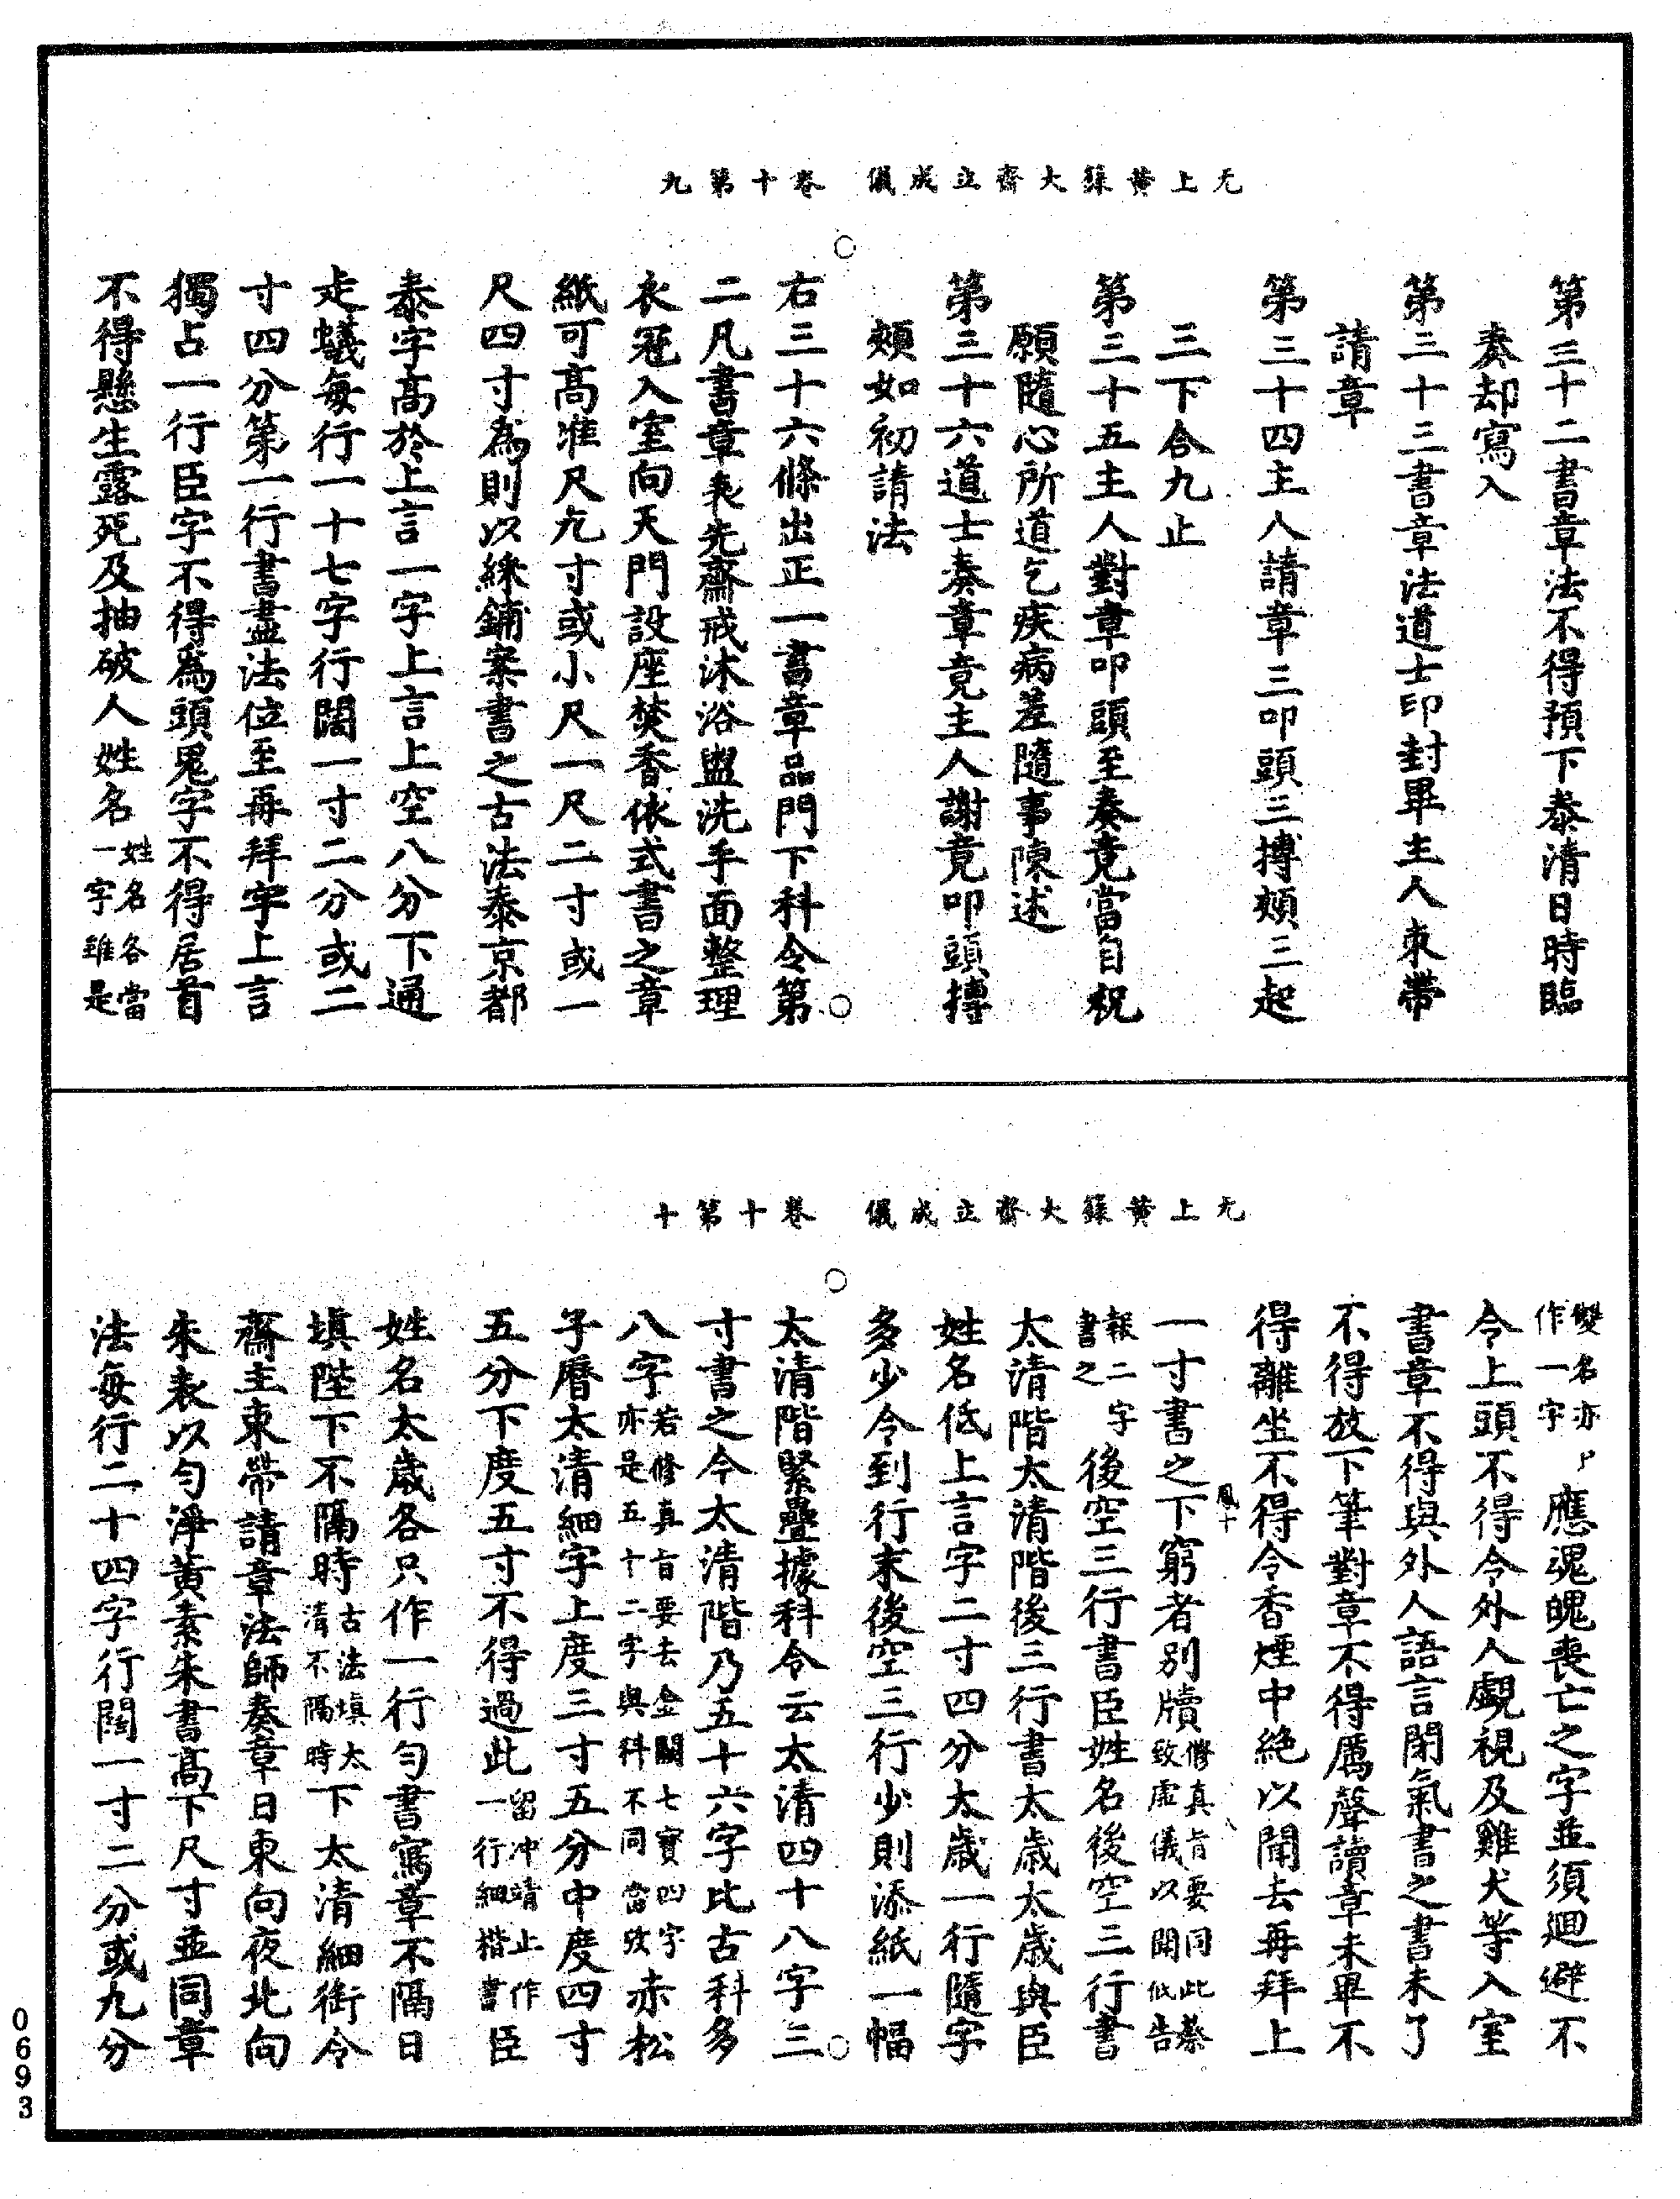 无上黄籙大齋立成儀　卷十第九
第三十二書章法不得預下泰清日時臨
奏却寫入
第三十三書章法道士印封畢主人束帶
請章
第三十四主人請章三叩頭三搏頰三起
三下合九止
第三十五主人對章叩頭至奏竟當自祝
願隨心所道乞疾病差隨事陳述
第三十六道士奏章竟主人謝竟叩頭搏
頰如初請法
右三十六條出正一書章品門下科令第
二凡書章表先齋戒沐浴盥洗手面整理
衣冠入室向天門設座焚香依式書之章
紙可高准尺九寸或小尺一尺二寸或一
尺四寸爲則以綵鋪案書之古法泰京都
泰字高於上言一字上言上空八分下通
走蟻每行一十七字行闊一寸二分或二
寸四分第一行書盡法位至再拜字上言
獨占一行臣字不得爲頭鬼字不得居首
不得懸生露死及抽破人姓名姓名各當
一字雖是
无上黄籙大齋立成儀　卷十第十
雙名亦
作一字應魂魄喪亡之字並須迴避不
令上頭不得令外人覷視及雞犬等入室
書章不得與外人語言閉氣書之書未了
不得放下筆對章不得厲聲讀章未畢不
得離坐不得令香煙中絶以聞去再拜上
一寸書之下窮者別牘修真旨要同此恭
致虛儀以聞低告
報二字
書之後空三行書臣姓名後空三行書
太清階太清階後三行書太歲太歲與臣
姓名低上言字二寸四分太歲一行隨字
多少令到行末後空三行少則添紙一幅
太清階緊疊據科令云太清四十八字三
寸書之今太清階乃五十六字比古科多
八字若修真旨要去金闕七寶四字
亦是五十二字與科不同當攷赤松
子曆太清細字上度三寸五分中度四寸
五分下度五寸不得過此留冲靖止作
一行細楷書臣
姓名太歲各只作一行勻書寫章不隔日
填陛下不隔時古法填太
清不隔時下太清細銜令
齋主束帶請章法師奏章日東向夜北向
朱表以勻淨黄素朱書高下尺寸並同章
法每行二十四字行闊一寸二分或九分
鳳十
0693